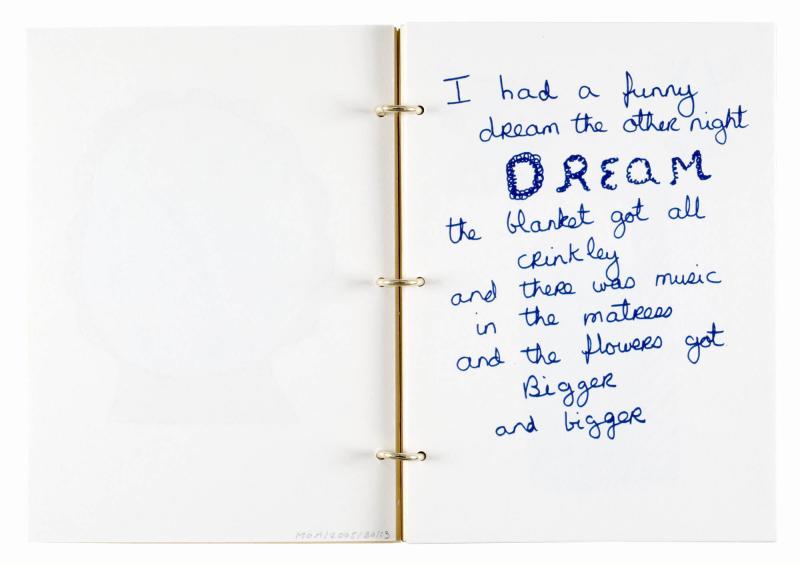 I had a funny
dream the other night
DREAM
the blanket got all
crinkley
and there was music
in the matress
and the flowers got
Bigger
and bigger